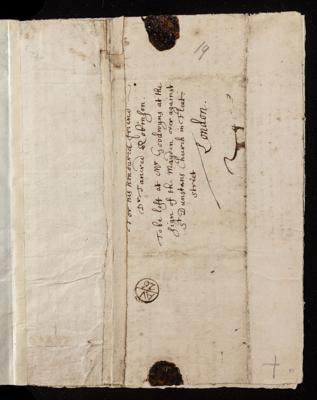 For his honoured friend
Dr Tancred Robinson.
To be left at Mr Goodwyns at the
signe of the Mayden over against
St Dunstans Church in Fleet
street
London.
19